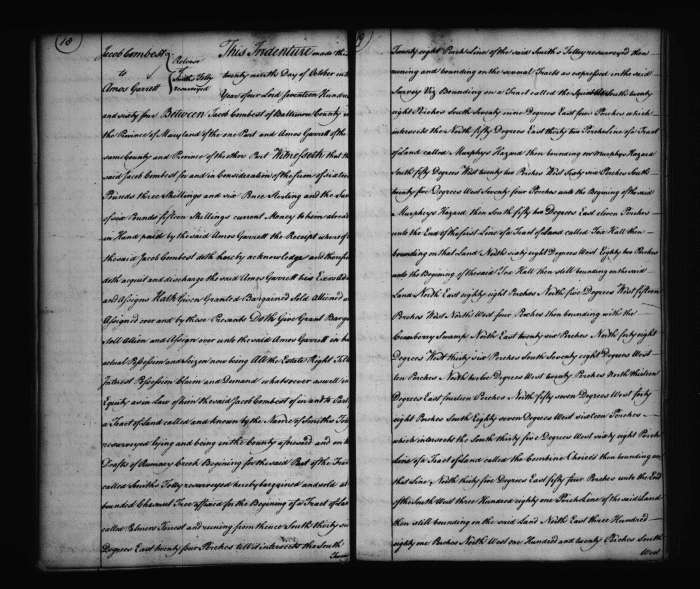 18
Jacob Combest
to
Amos Garrett
Release
of
Smiths Folly
resurveyed
This Indenture made this
twenty ninth Day of October in the
Year of our Lord Seventeen Hundred
and sixty four Between Jacob Combest of Baltimore County in
the Province of Maryland of the one Part and Amos Garrett of the
same County and Province of the other Part Witnesseth that the
said Jacob Combest for and in Consideration of the sum of sixteen
Pounds three Shillings and six Pence Sterling and the Sum
of six Pounds fifteen Shillings current Money to him already
in Hand paid by the said Amos Garrett the Receipt whereof
the said Jacob Combest doth hereby acknowledge and thereof
doth acquit and discharge the said Amos Garrett his
and Assigns Hath Given Granted Bargained Sold Aliened and
Assign'd over and by these Presents Doth Give Grant Bargain
sell Alien and Assign over unto the said Amos Garrett in his
actual Possession and Seizen now being All the Estate Right Title
Interest Possession Claim and Demand whatsoever as well in
Equity as in Law of him the said Jacob Combest of in and to Part
a Tract of Land called and known by the Name of Smiths Folly
resurveyed lying and being in the County aforesaid and on the
Drafts of Rumney Creek Begining for the said Part of the Tract
called Smiths Folly resurveyed hereby bargained and sold at a
bounded Chesnut Tree affixed for the Begining of a Tract of Land
called Palmers Forrest and running from thence South thirty six
Degrees East twenty four Perches till it intersects the South
Twenty eight Perch Line of the said Smiths Folley resurveyed then
runing and bounding on the several Tracts as expressed in the said
Survey Viz Bounding on a Tract called the South twenty
eight Perches South Seventy nine Degrees East four Perches which
intersects then North fifty Degrees East thirty two Perches Line of a Tract
of Land called Murphys Hazard then bounding on Murphys Hazard
South fifty Degrees West twenty two Perches West sixty six Perches South
twenty five Degrees West Seventy four Perches unto the Begining of the said
Murpheys Hazard then South fifty two Degrees East eleven Perches
unto the End of the first Line of a Tract of Land called Fox Hall then
bounding on that Land North sixty eight Degrees West Eighty two Perches
unto the Begining of the said Fox Hall then still bounding on the said
Land North East eighty eight Perches North five Degrees West fifteen
Perches West North West four Perches then bounding with the
Cranberry Swamp North East twenty six Perches North forty eight
Degrees West thirty six Perches South Seventy eight Degrees West
ten Perches North twelve Degrees West twenty Perches North thirteen
Degrees East fourteen Perches North fifty seven Degrees West forty
eight Perches South Eighty seven Degrees West sixteen Perches
which intersects the South thirty five Degrees West sixty eight Perch
Line of a Tract of Land called the Combine Choices then bounding on
that Line North thirty five Degrees East fifty four Perches unto the End
of the South West three Hundred eighty one Perch Line of the said Land
then still bounding on the said Land North East three Hundred
eighty one Perches North West one Hundred and twenty Perches South
West